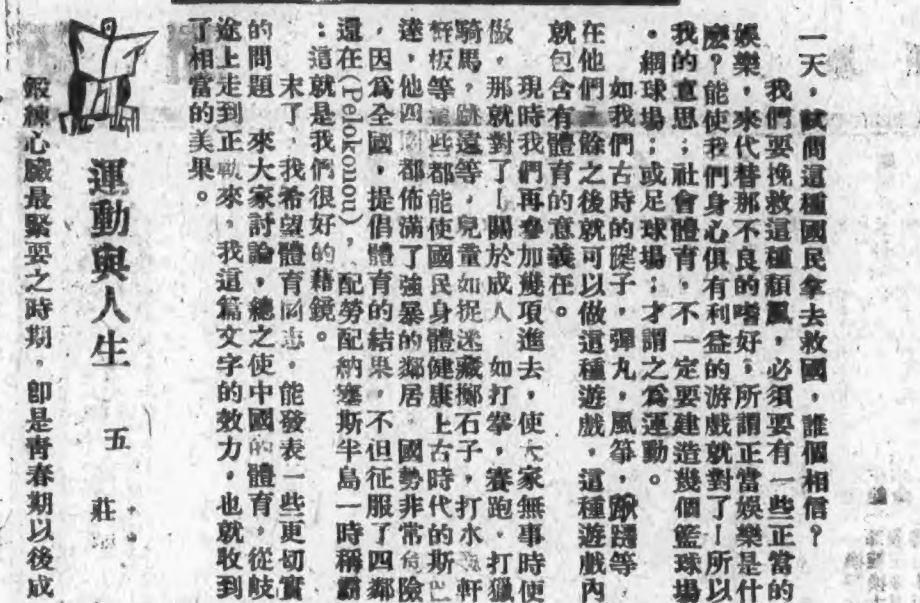 一天，試問這種國民拿去救國，誰個相信？
我們要挽救這種頹風，必須要有一些正當的
娛樂，來代替那不良的嗜好，所謂正當娛樂是什
麼？能使我們身心俱有利益的游戲就對了—所以
我的意思；社會體育，不一定要建造幾個籃球場
。網球場；或足球場；才謂之爲運動。
如我們古時的毽子，彈丸，風箏，蹴踘等
在他們餘之後就可以做這種遊戲，這種遊戲內
就包含有體育的意義在。
現時我們再參加幾項進去，使大家無事時便
做，那就對了—關於成人，如打拳，賽跑，打獵
騎馬，跳遠等，兒童如捉迷藏擲石子，打水，鞦
韆板等這些都能使國民身體健康上古時代的斯巴
達，他四圍都佈滿了強暴的鄰居，國勢非常危險
，因爲全國，提倡體育的結果，不但征服了四鄰
還在(Pelokonou)，配勞配納塞斯半島一時稱霸
：這就是我們很好的藉鏡。
末了，我希望體育同志，能發表一些更切實
的問題 來大家討論，總之使中國的體育，從岐
途上走到正軌來，我這篇文字的效力，也就收到
了相當的美果。
運動與人生
五 莊
鍛練心臟最緊要之時期，卽是靑春期以後成